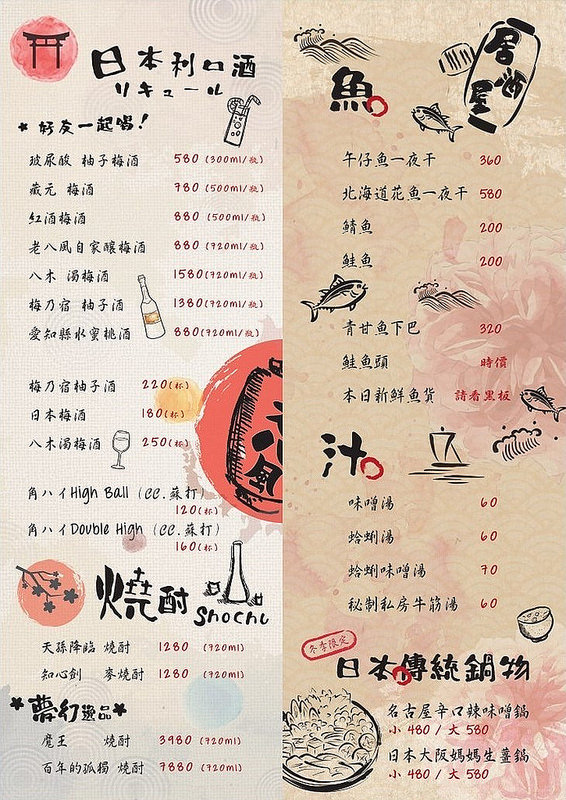 日本利口酒
リキュール
好友一起喝!
玻尿酸 柚子梅酒 580 (300ml/瓶)
藏元 梅酒 780 (500ml/瓶)
紅酒梅酒 880 (500ml/瓶)
老八風自家釀梅酒 880 (720ml/瓶)
八木 濁梅酒 1580(720ml/瓶)
梅乃宿 柚子酒 1380(720ml/瓶)
愛知縣水蜜桃酒 880(720ml/瓶)
梅乃宿柚子酒 220(杯)
日本梅酒 180(杯)
八木濁梅酒 250(杯)
角ハイHigh Ball (cc.蘇打)
120(杯)
角ハイDouble High (cc.蘇打)
160(杯)
燒酎 Shochu
天孫降臨 燒酎 1280 (720ml)
知心劍 麥燒酎 1280 (720ml)
夢幻逸品
魔王 燒酎 3980 (720ml)
百年的孤獨 燒酎 7880 (720ml)
八風
居酒屋
魚。
午仔魚一夜干 360
北海道花魚一夜干 580
鯖魚 200
鮭魚 200
青甘魚下巴 320
鮭魚頭 時價
本日新鮮魚貨 請看黑板
汁。
味噌湯 60
蛤蜊湯 60
蛤蜊味噌湯 70
秘制私房牛筋湯 60
冬季限定
日本傳統鍋物
名古屋辛口辣味噌鍋
小 480 / 大 580
日本大阪媽媽生薑鍋
小 480 / 大 580